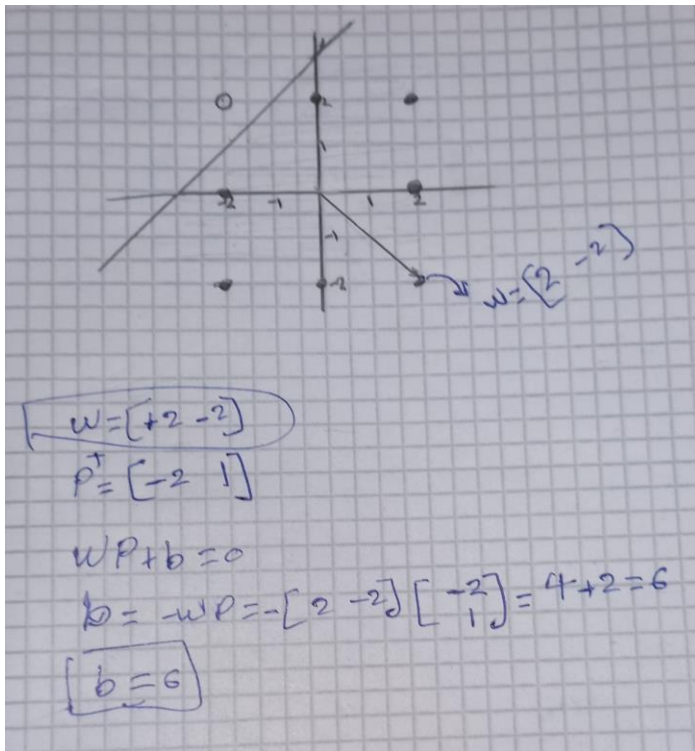 2 2
1
-2 -1 1 2
-1
-2
w=[2 -2]
w=[+2 -2]
P^T=[-2 1]
WP+b=0
b= -WP=-[2 -2][-2 1]=4+2=6
b=6